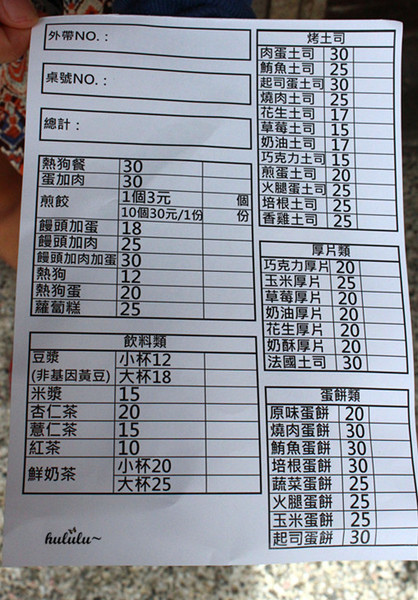 外帶NO.：
桌號NO.：
總計：
熱狗餐 30
蛋加肉 30
煎餃 1個3元 個
10個30元/1份 份
饅頭加蛋 18
饅頭加肉 25
饅頭加肉加蛋 30
熱狗 12
熱狗蛋 20
蘿蔔糕 25
飲料類
豆漿 小杯12
(非基因黃豆) 大杯18
米漿 15
杏仁茶 20
薏仁茶 15
紅茶 10
鮮奶茶 小杯20
大杯25
hululu~
烤土司
肉蛋土司 30
鮪魚土司 25
起司蛋土司 30
燒肉土司 25
花生土司 17
草莓土司 15
奶油土司 17
巧克力土司 15
煎蛋土司 20
火腿蛋土司 25
培根土司 25
香雞土司 25
厚片類
巧克力厚片 20
玉米厚片 25
草莓厚片 20
奶油厚片 20
花生厚片 20
奶酥厚片 20
法國土司 30
蛋餅類
原味蛋餅 20
燒肉蛋餅 30
鮪魚蛋餅 30
培根蛋餅 30
蔬菜蛋餅 25
火腿蛋餅 25
玉米蛋餅 25
起司蛋餅 30